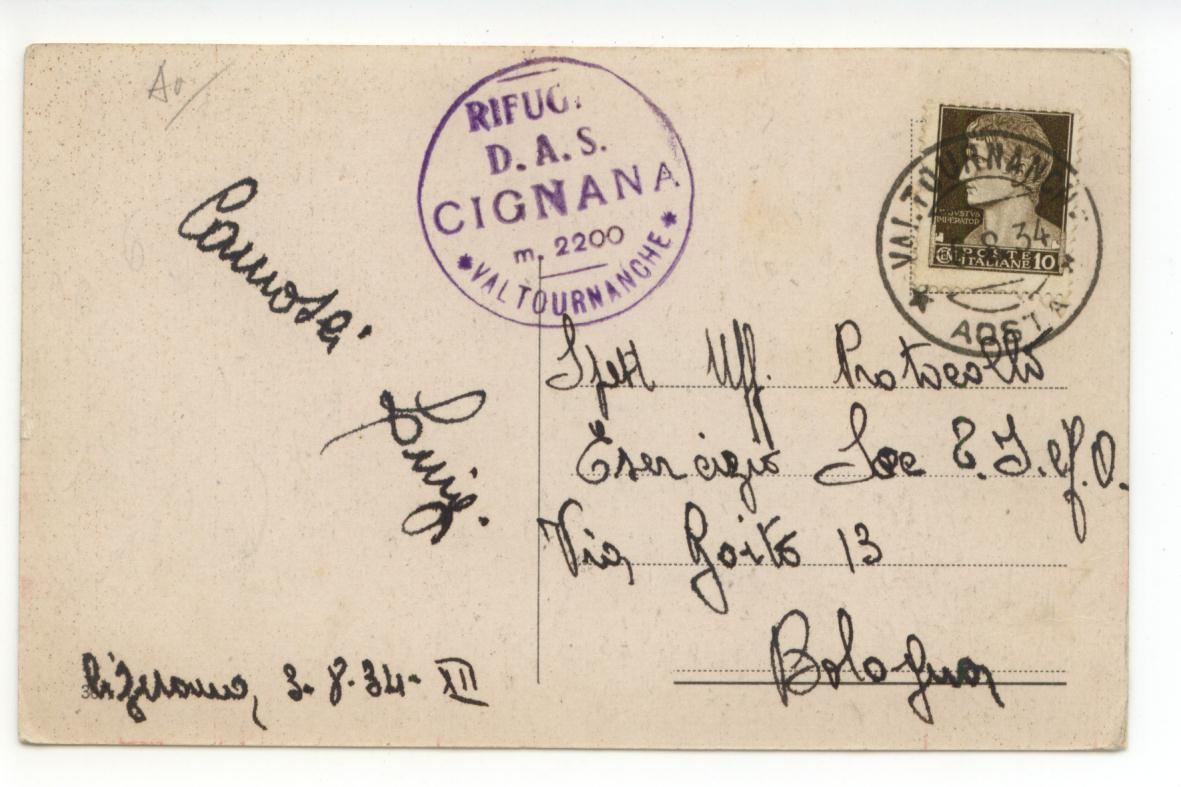 Ao/
RIFUG.
D. A. S.
CIGNANA
m. 2200
*VALTOURNANCHE*
VALTOURNANCHE
8 34
AOSTA
IMPERATOR
POSTE
CEN ITALIANE 10
Luigi
Spett Uff. Protocollo
Esercizio Soc
Via Goito 13
Bologna
3-8-34-XII